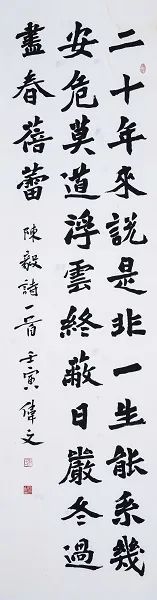 二十年來說是非一生能系幾
安危莫道浮雲終蔽日嚴冬過
盡春蓓蕾
陳毅詩一首 壬寅 偉文